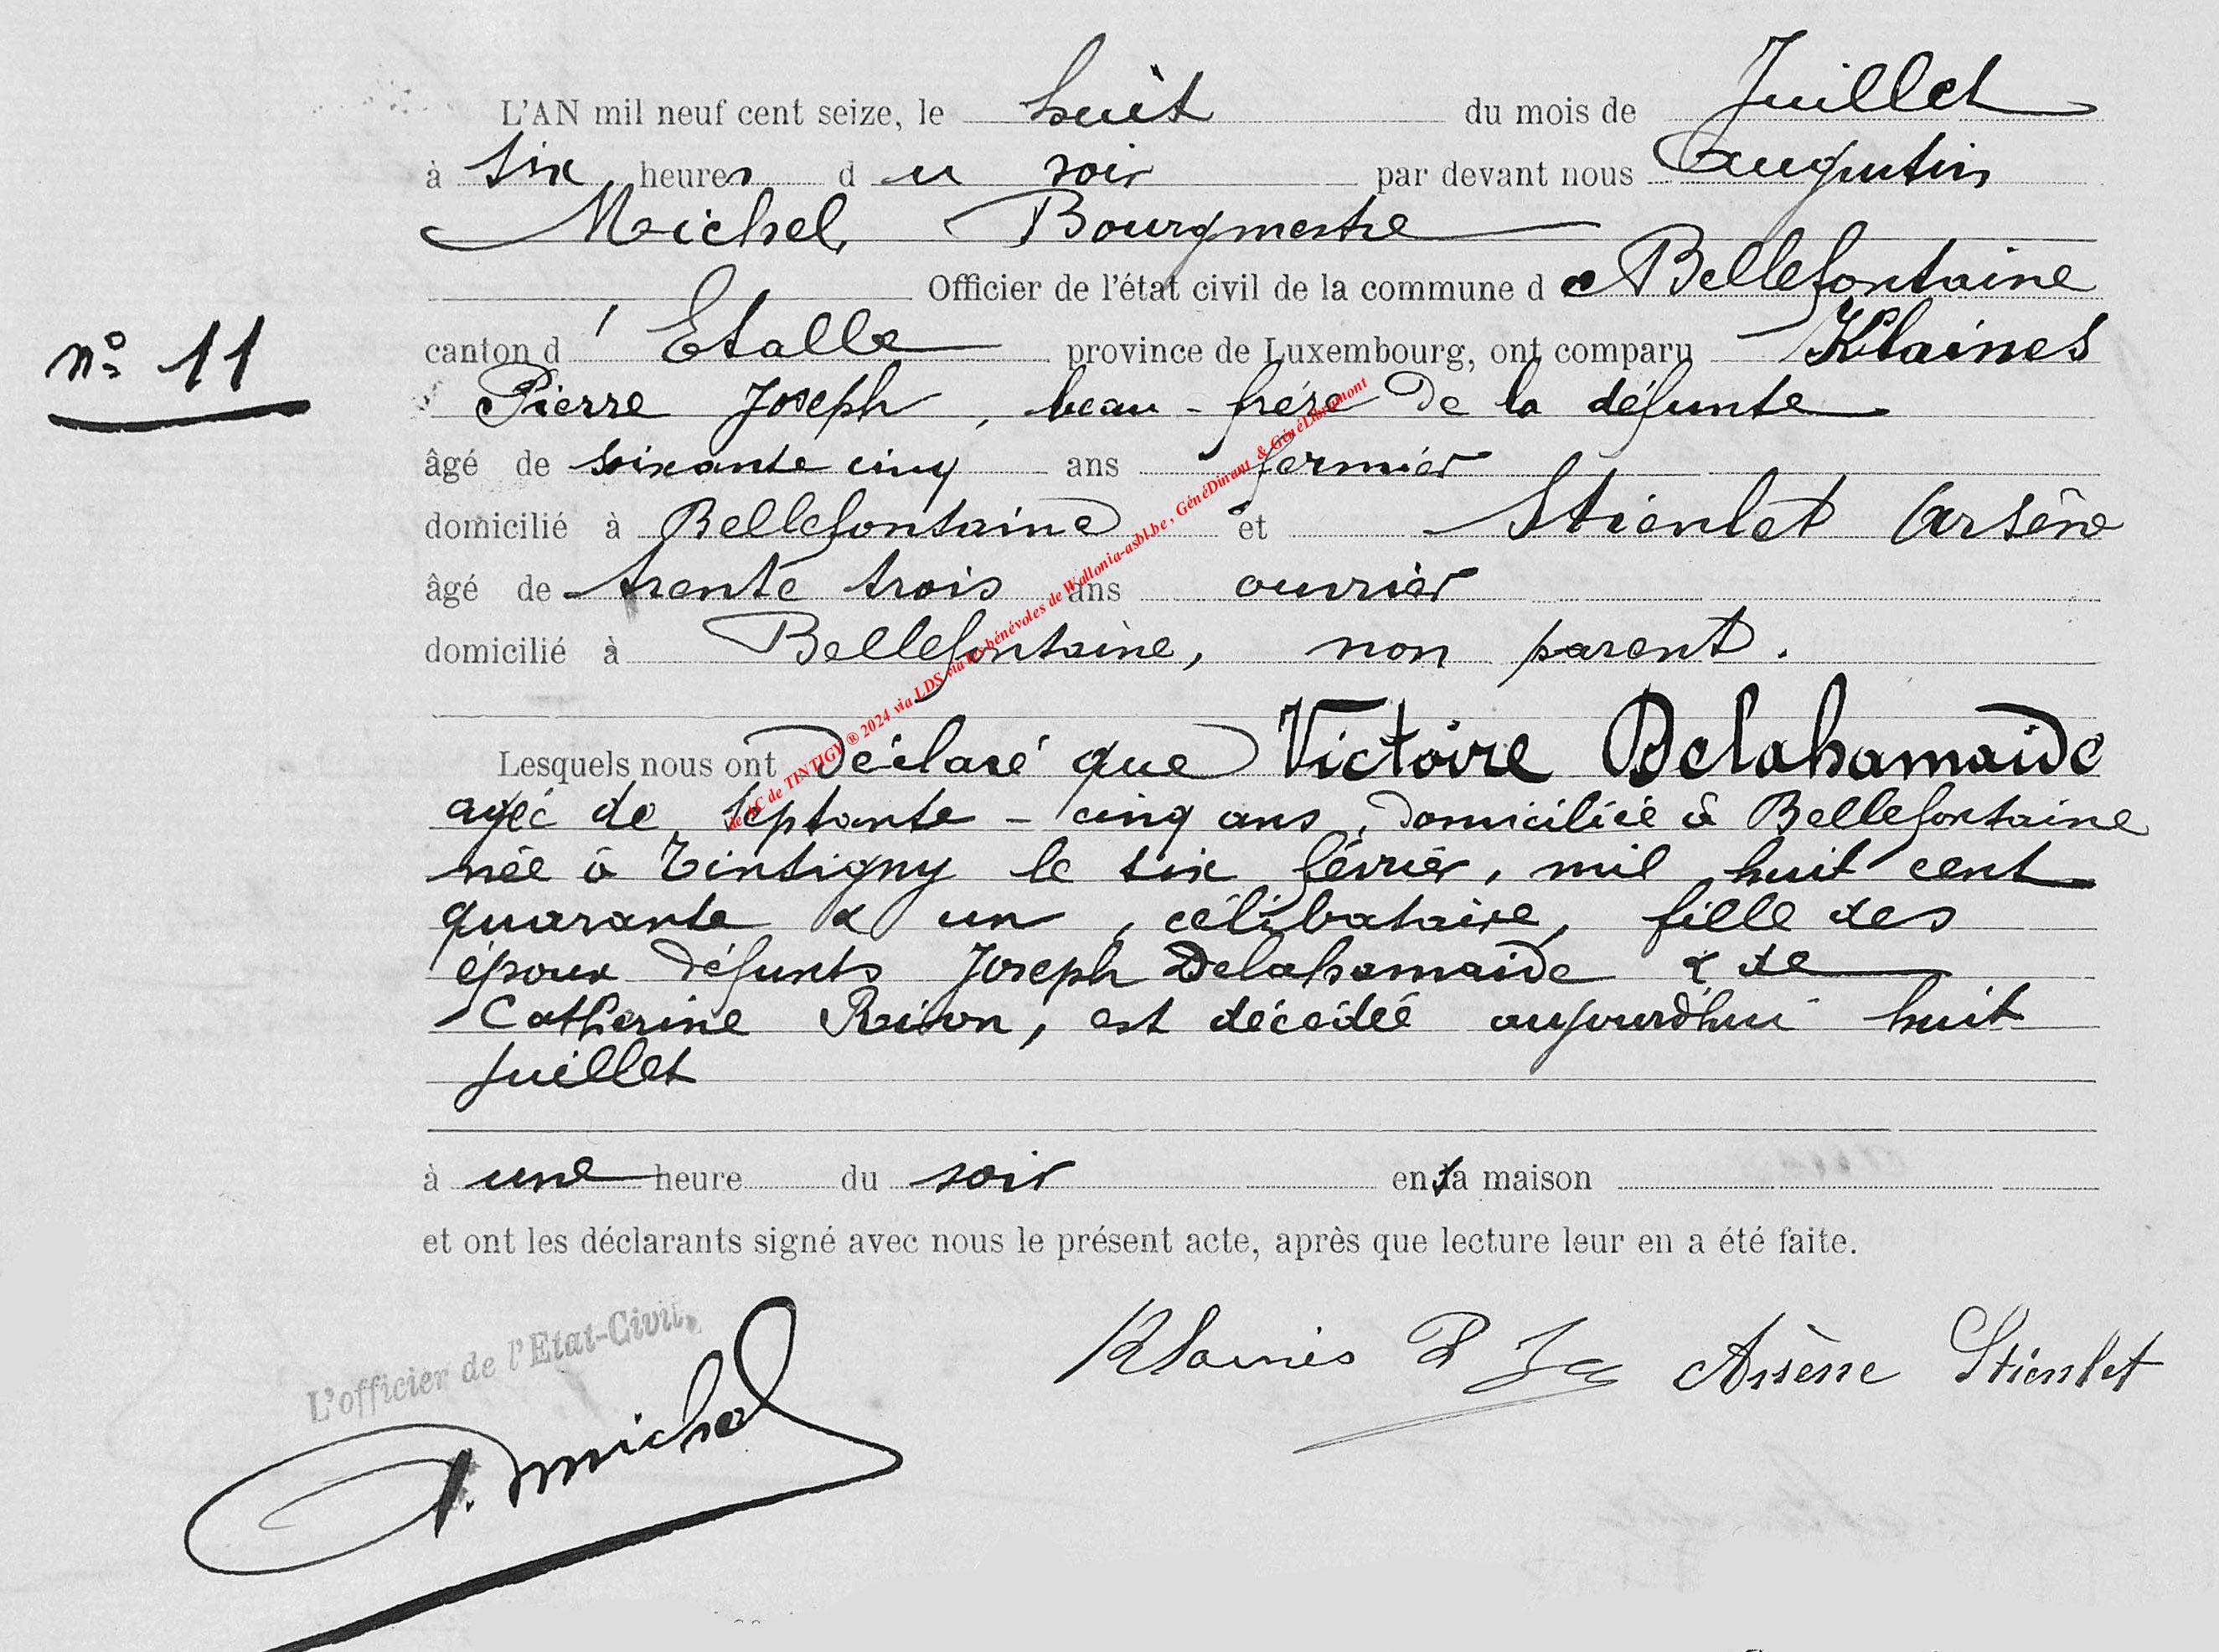 L'AN mil neuf cent seize, le huit du mois de Juillet
à six heures du soir par devant nous Augustin
Michel, Bourgmestre
Officier de l'état civil de la commune de Bellefontaine
n° 11
canton d'Etalle province de Luxembourg, ont comparu Klaines
Pierre Joseph, beau-frére de la défunte
âgé de soixante cinq ans fermier
domicilié à Bellefontaine et Stienlet Arsène
âgé de trente trois ans ouvrier
domicilié à Bellefontaine, non parent.
de AC de TINTIGY ® 2024 via LDS via les bénévoles de Wallonia-asbl.be, GénéDinant & GénéLibramont
Lesquels nous ont déclaré que Victoire Delahamaide
agée de septante-cinq ans, domiciliée à Bellefontaine
née à Tintigny le six février, mil huit cent
quarante & un, célibataire, fille des
époux défunts Joseph Delahamaide & de
Catherine, est décédée aujourd'hui huit
juillet
à une heure du soir en sa maison
et ont les déclarants signé avec nous le présent acte, après que lecture leur en a été faite.
L'officier de l'Etat-Civil,
A. Michel
Klaines P J Arsène Stienlet